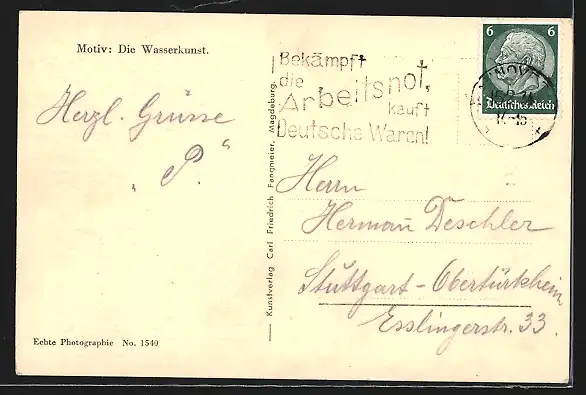 Motiv: Die Wasserkunst.
Herzl. Grüsse
„P.“
Echte Photographie No. 1540
Kunstverlag Carl Friedrich Fangmeier, Magdeburg.
Bekämpft
die
Arbeitsnot,
kauft
Deutsche Waren!
6 6
Deutsches Reich
Herrn
Herman̄ Deschler
Stuttgart-Obertürkheim
Esslingerstr. 33.